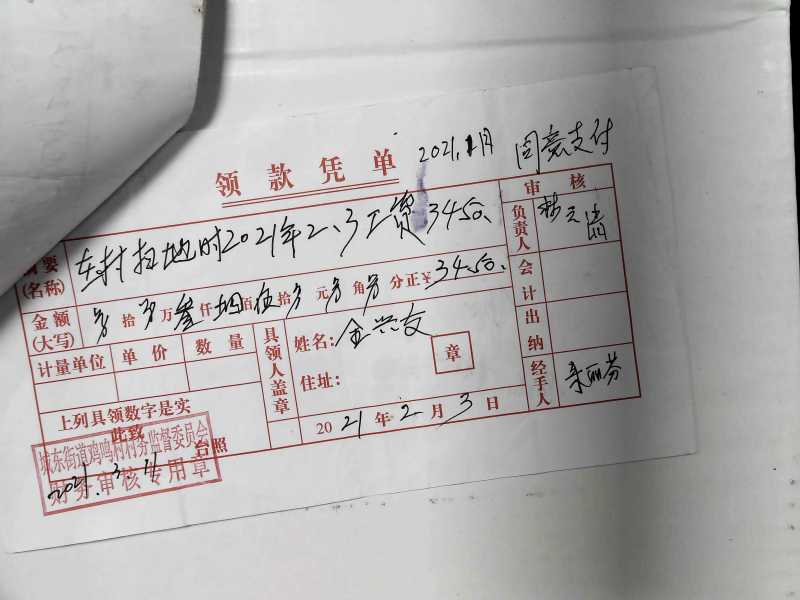 领款凭单
2021.1月 同意支付
审核
摘要
(名称)
在村扫地时2021年2、3工资3450、
负责人
会计
金额
(大写)
拾万叁仟肆百伍拾元角分正¥3450、
计量单位 单价 数量
具领人盖章
姓名:金兴友
章
住址:
出纳
经手人
上列具领数字是实
此致
台照
2021年2月3日
城东街道鸡鸣村村务监督委员会
财务审核专用章
2021.3.4